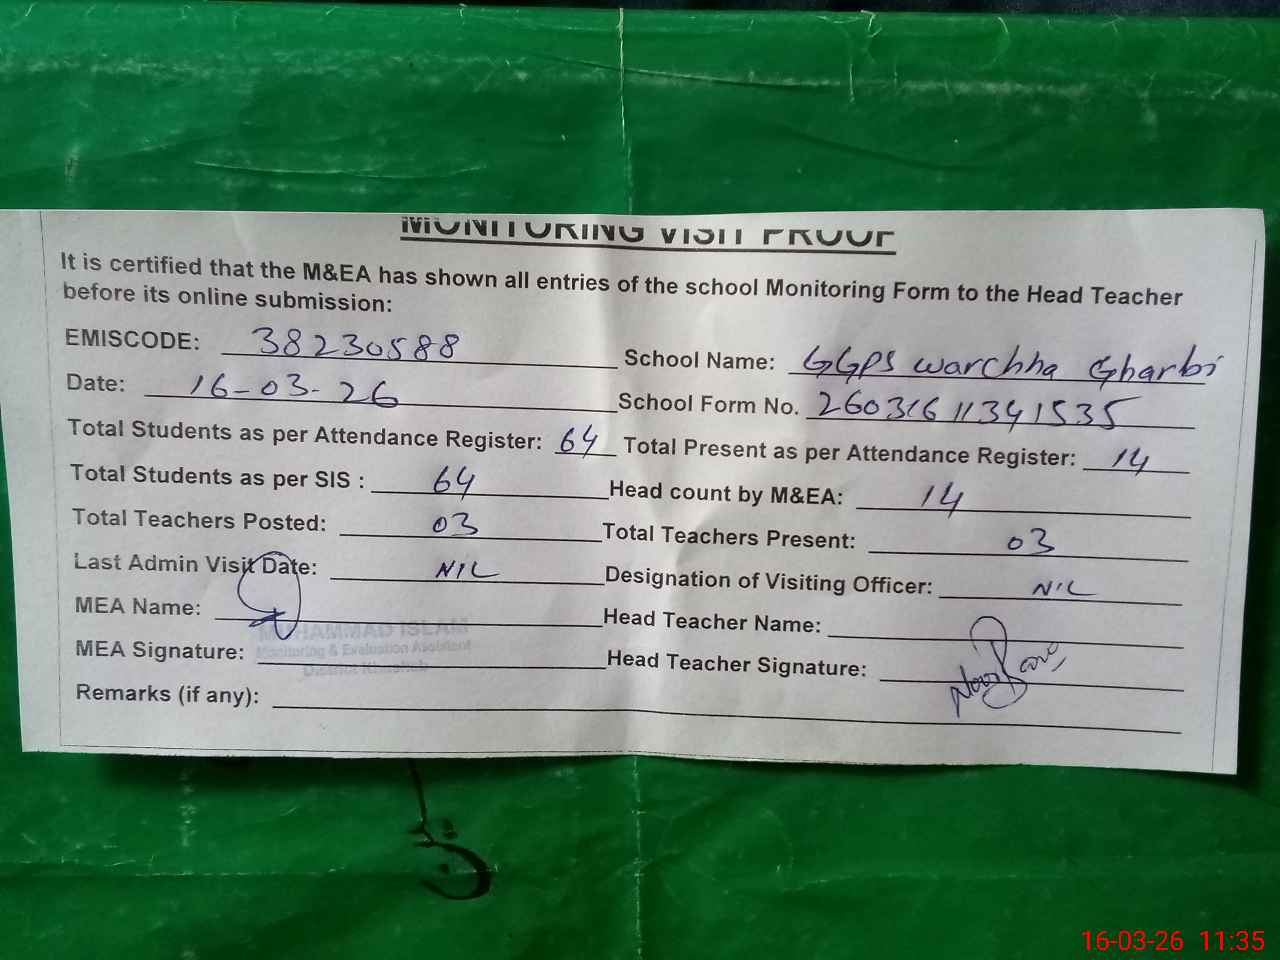 MONITORING VISIT PROOF
It is certified that the M&EA has shown all entries of the school Monitoring Form to the Head Teacher
before its online submission:
EMISCODE: 38230588 School Name: GGPS warchha Gharbi
Date: 16-03-26 School Form No. 26031611341535
Total Students as per Attendance Register: 64 Total Present as per Attendance Register: 14
Total Students as per SIS : 64 Head count by M&EA: 14
Total Teachers Posted: 03 Total Teachers Present: 03
Last Admin Visit Date: NIL Designation of Visiting Officer: NIL
MEA Name: Head Teacher Name:
MUHAMMAD ISLAM
Monitoring & Evaluation Assistent
District Khushab
MEA Signature: Head Teacher Signature:
Remarks (if any):
16-03-26 11:35